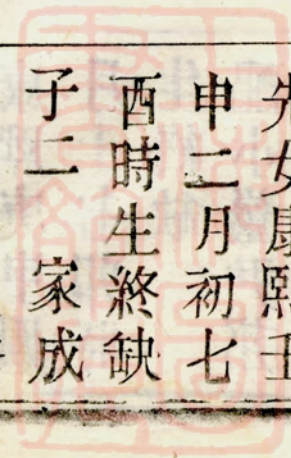 女康熙壬
申二月初七
酉時生終缺
子二　家成